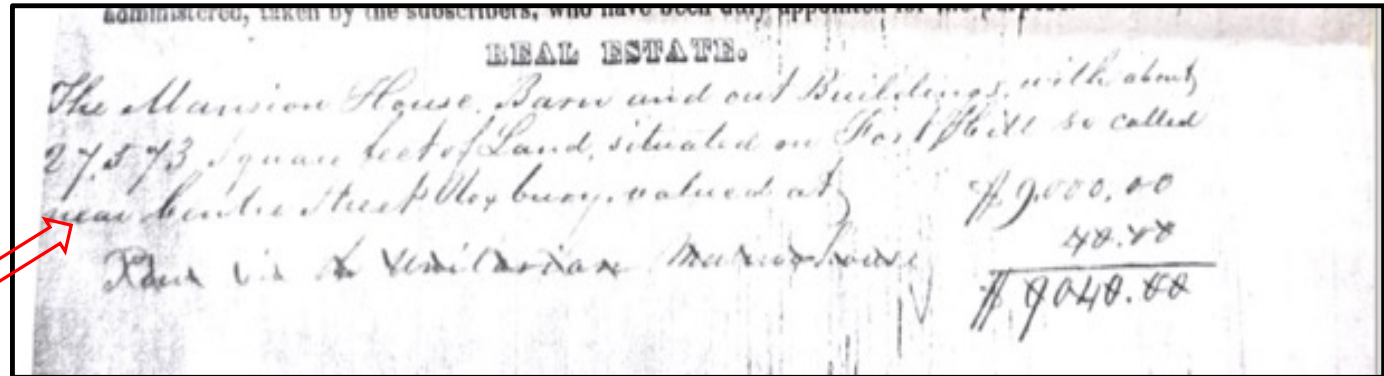 administered, taken by the subscribers, who have been duly appointed for the purpose
REAL ESTATE.
The Mansion House, Barn and out Buildings, with about
27,573 Square feet of Land, situated on Fort Hill so called
near Centre Street Roxbury, valued at $9,000,00
in Unitarian